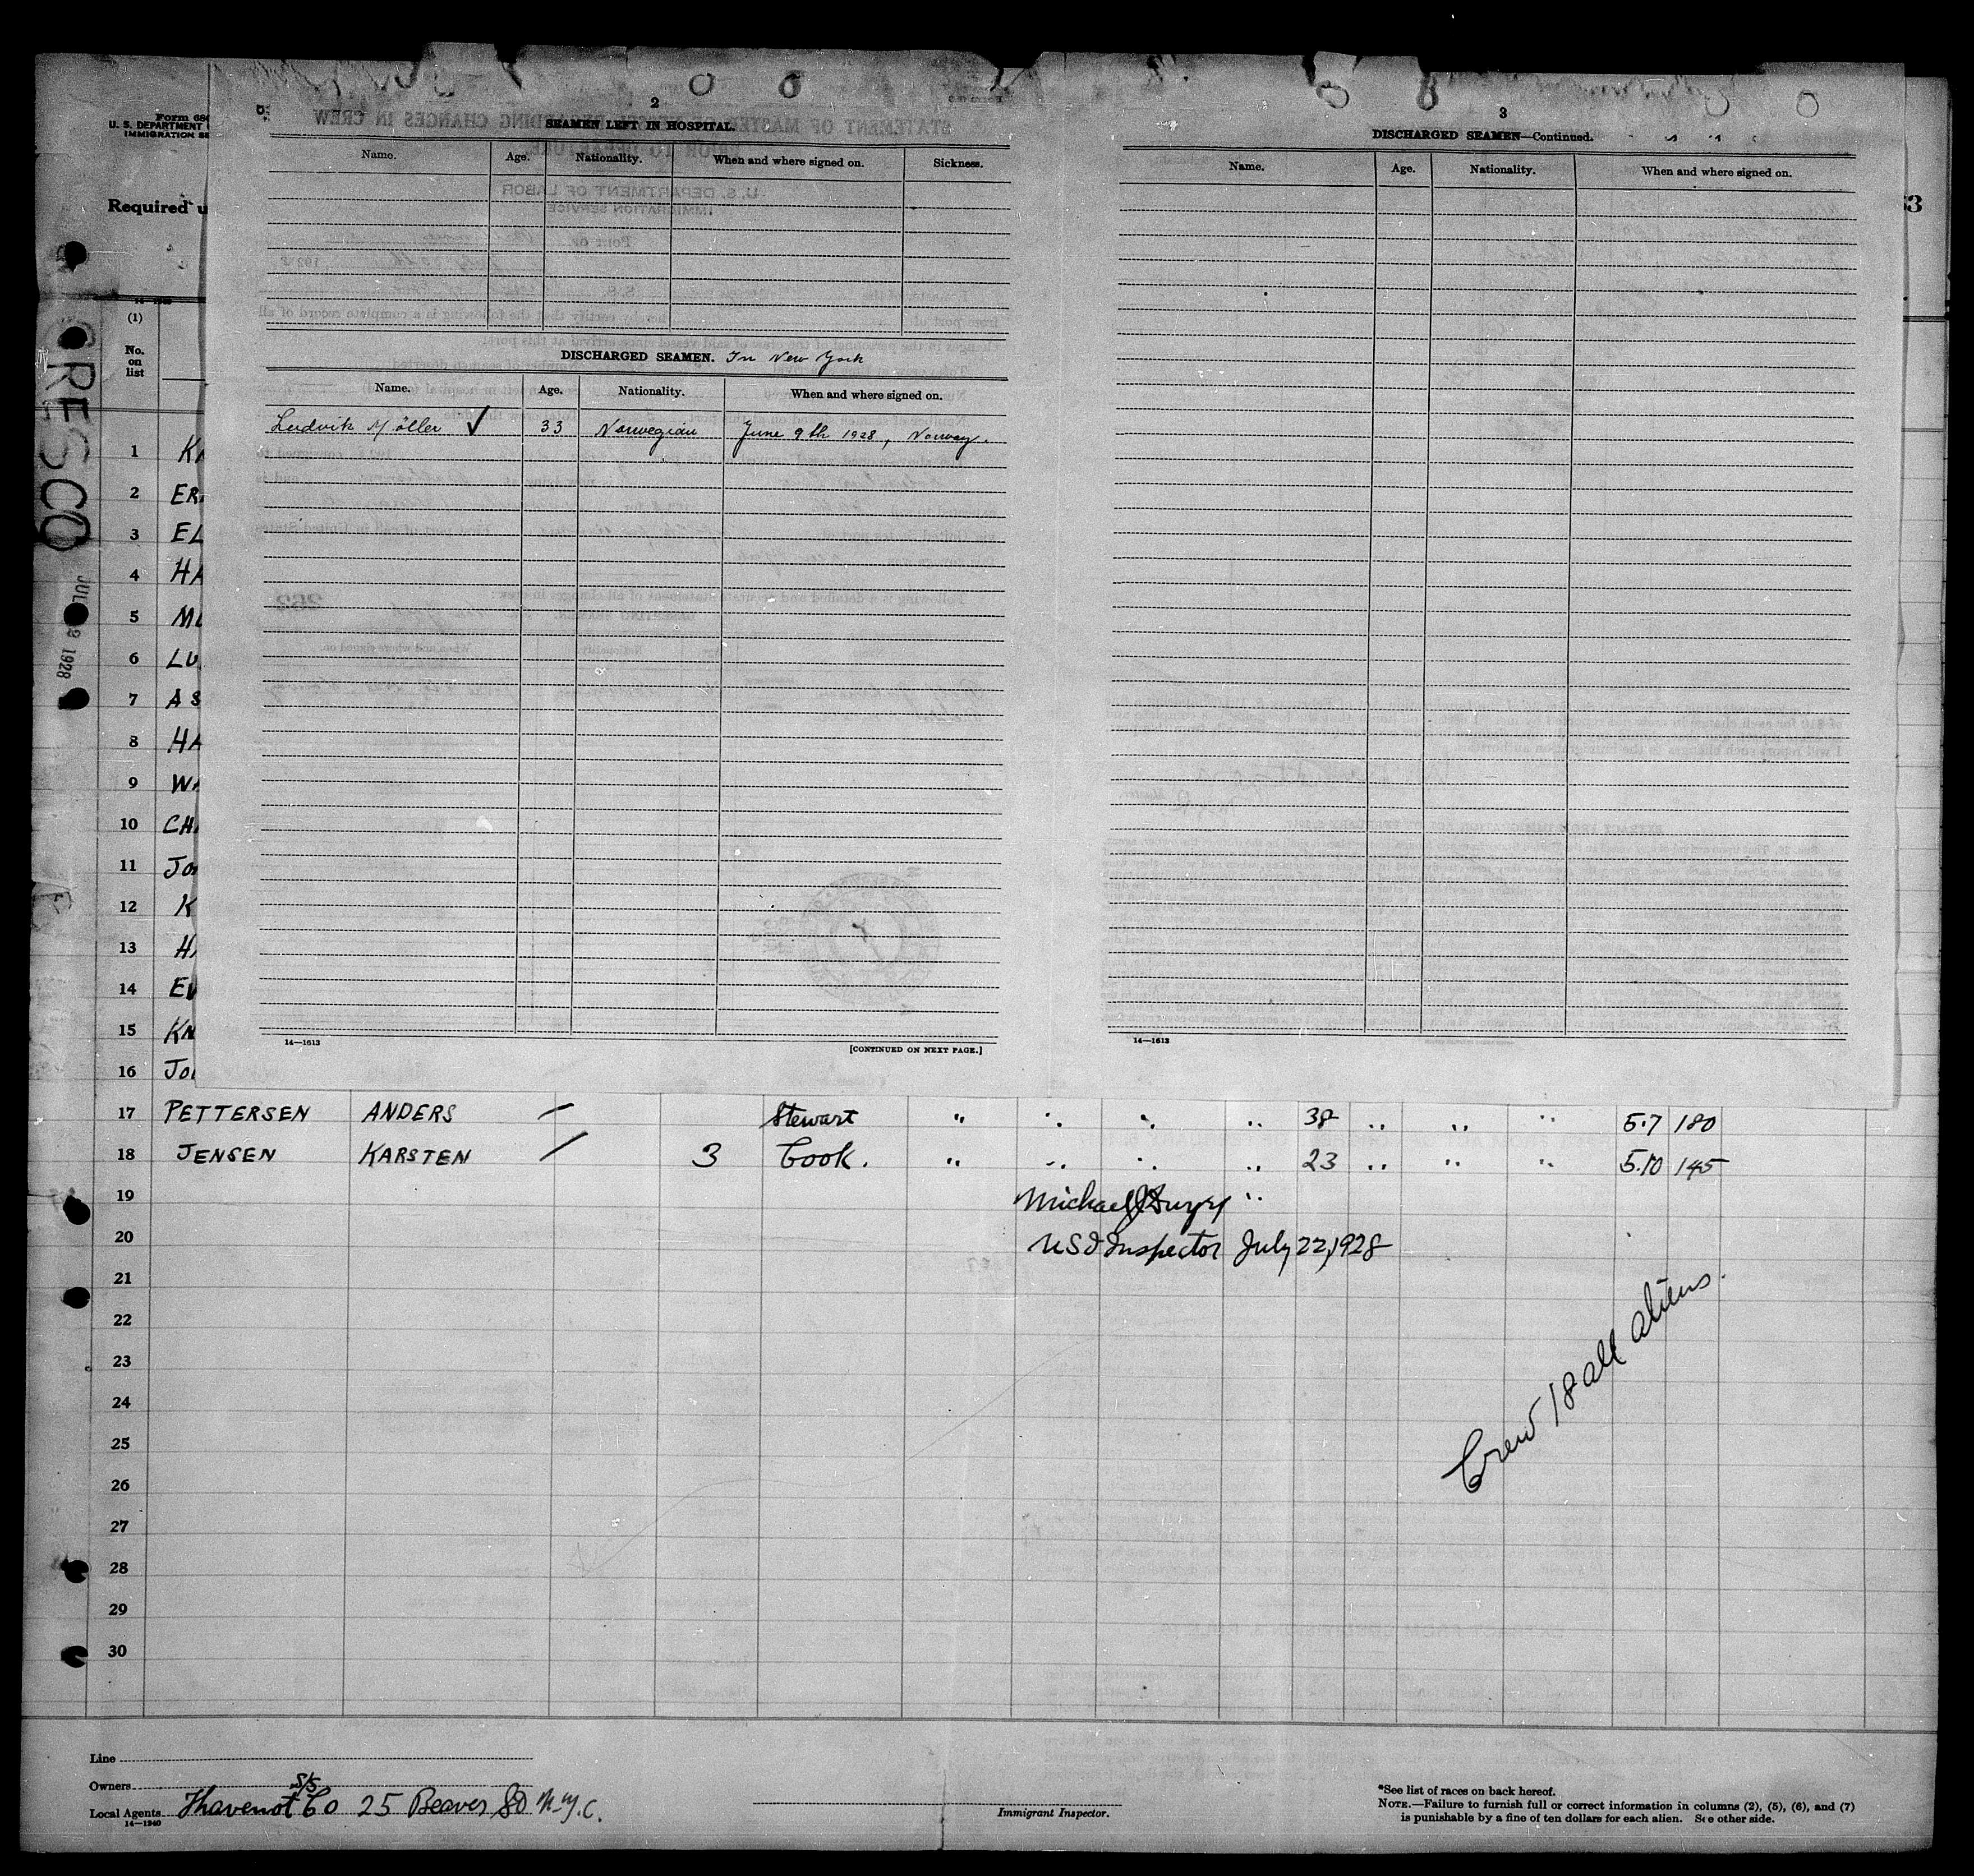 2
SEAMEN LEFT IN HOSPITAL.
Name. Age. Nationality. When and where signed on. Sickness.
DISCHARGED SEAMEN. In New York
Name. Age. Nationality. When and where signed on.
Ludvik Möller ✓ 33 Norwegian June 9th 1928, Norway.
14—1613
[CONTINUED ON NEXT PAGE.]
3
DISCHARGED SEAMEN—Continued.
Name. Age. Nationality. When and where signed on.
14—1613
Form 680
U. S. DEPARTMENT
IMMIGRATION SE
Required u
63
CRESCO
JUL 1928
(1)
No.
on
list
1 KA
2 ER
3 EL
4 HA
5 MU
6 LU
7 AS
8 HA
9 WA
10 CHA
11 JOH
12 K
13 HA
14 EV
15 KN
16 JOH
17 PETTERSEN ANDERS — Stewart " " " " 38 " " " 5.7 180
18 JENSEN KARSTEN / 3 Cook. " " " " 23 " " " 5.10 145
19 Michael J "
20 USI Inspector July 22, 1928
21
22
23
24
25
26
27
28
29
30
Crew 18 all aliens.
Line
Owners
Local Agents Thavenot S/S Co 25 Beaver St N.Y.C.
14—1240
Immigrant Inspector.
*See list of races on back hereof.
NOTE.—Failure to furnish full or correct information in columns (2), (5), (6), and (7)
is punishable by a fine of ten dollars for each alien. See other side.